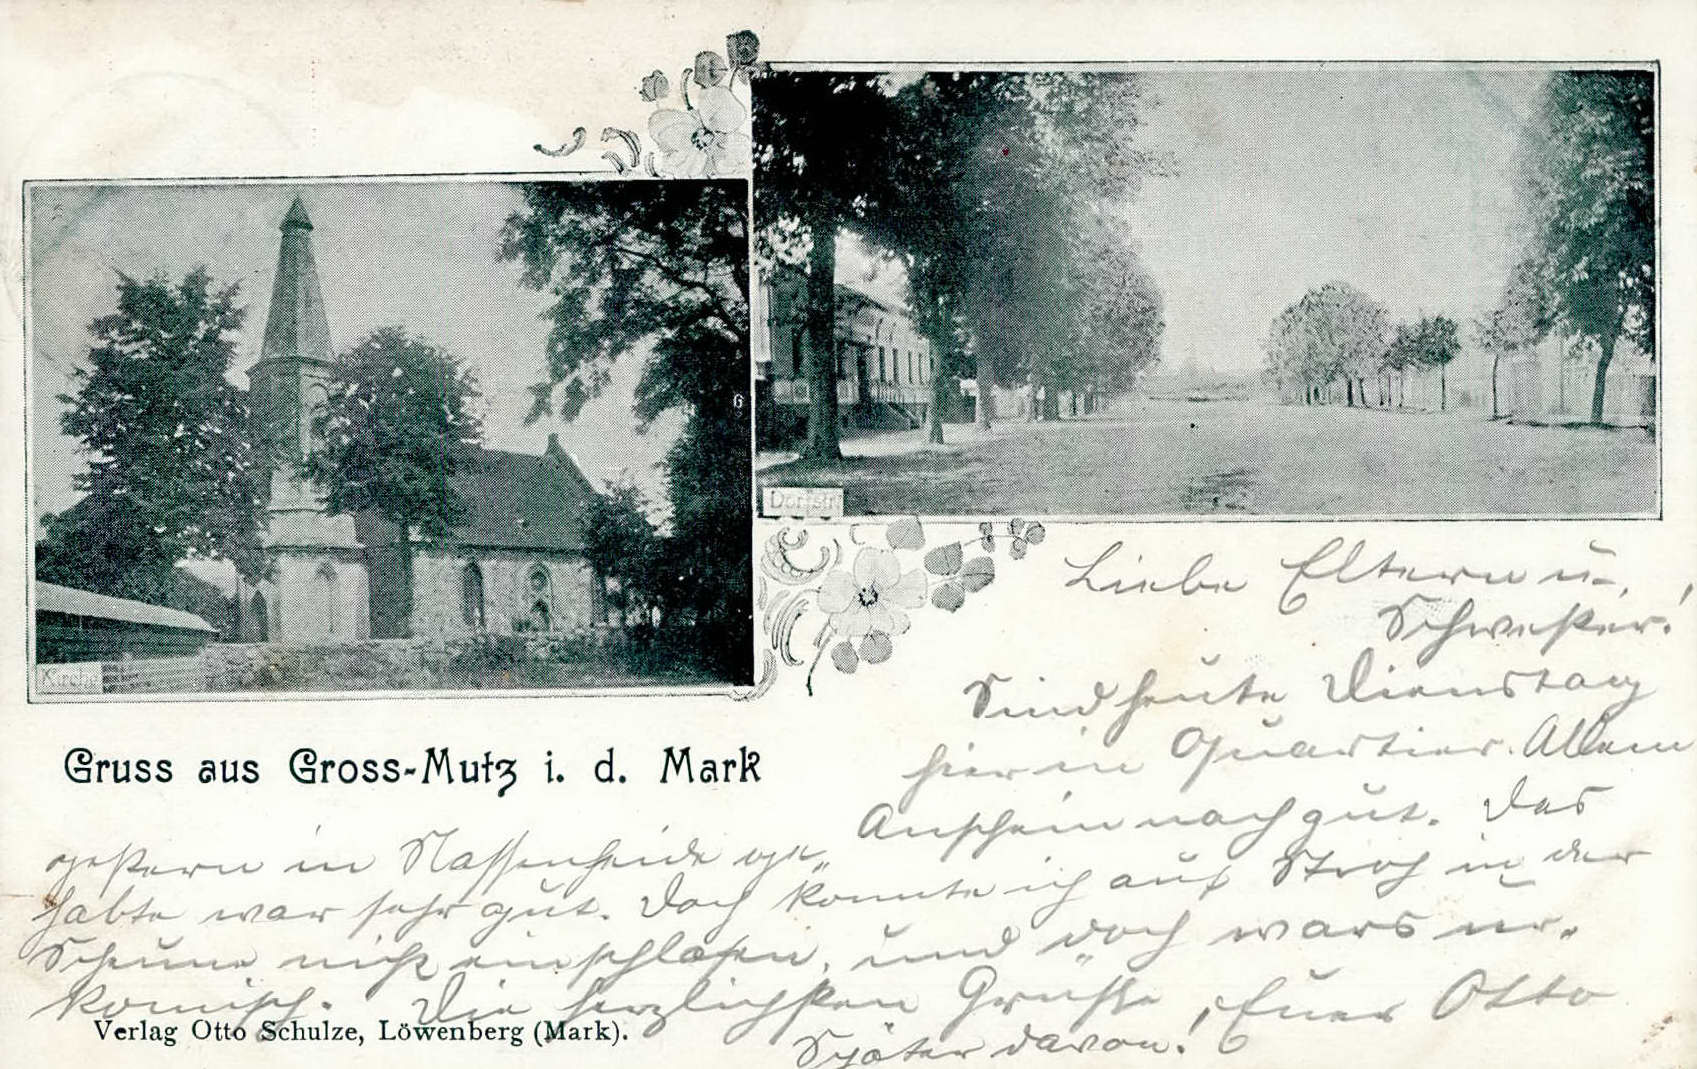 Kirche
Dorfstr.
Gruss aus Gross-Mutz i. d. Mark
Liebe Eltern u.
Schwester!
Sind heute Dienstag
hier in Quartier. Allem
Anschein nach gut. Das
gestern in Nassenheide ge„
habte war sehr gut. Doch konnte ich auf Stroh in der
Scheune nicht einschlafen, und doch wars ur„
komisch. Die herzlichsten Grüße, Euer Otto
Später davon!
Verlag Otto Schulze, Löwenberg (Mark).